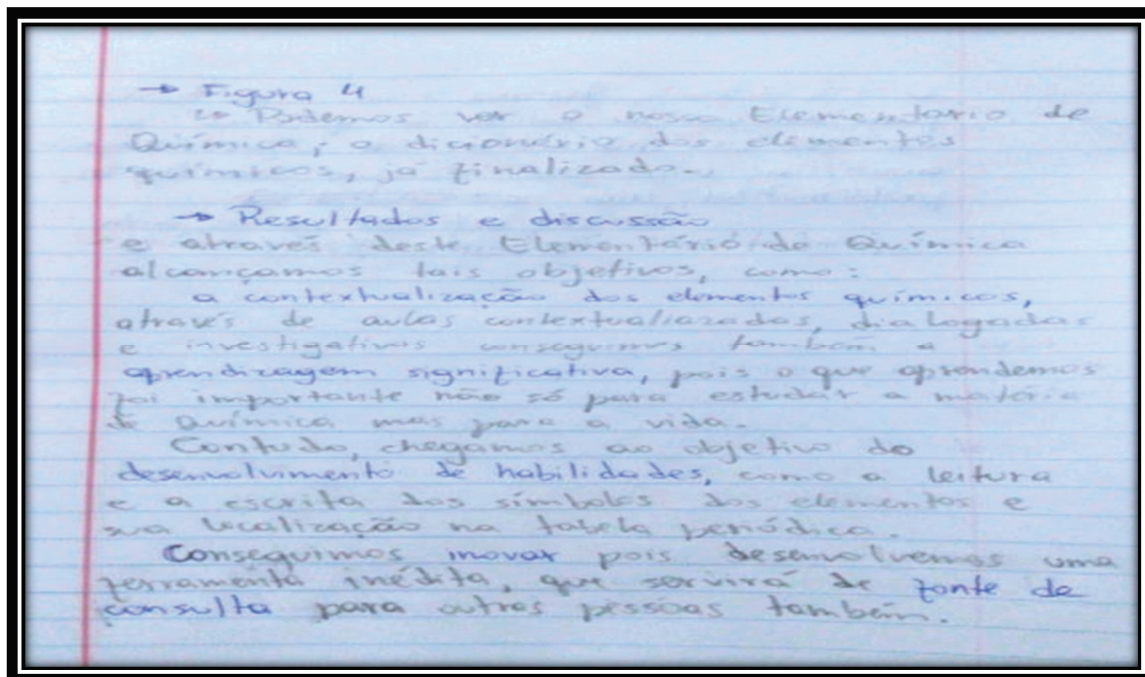 → Figura 4
↳ Podemos ver o nosso Elementário de
Química, o dicionário dos elementos
químicos, já finalizado.
→ Resultados e discussão
e através deste Elementário de Química
alcançamos tais objetivos, como:
a contextualização dos elementos químicos,
através de aulas contextualiazadas, dialogadas
e investigativas conseguimos também a
aprendizagem significativa, pois o que aprendemos
foi importante não só para estudar a matéria
de Química mas para a vida.
Contudo, chegamos ao objetivo do
desenvolvimento de habilidades, como a leitura
e a escrita dos símbolos dos elementos e
sua localização na tabela periódica.
Conseguimos inovar pois desenvolvemos uma
ferramenta inédita, que servirá de fonte de
consulta para outras pessoas também.